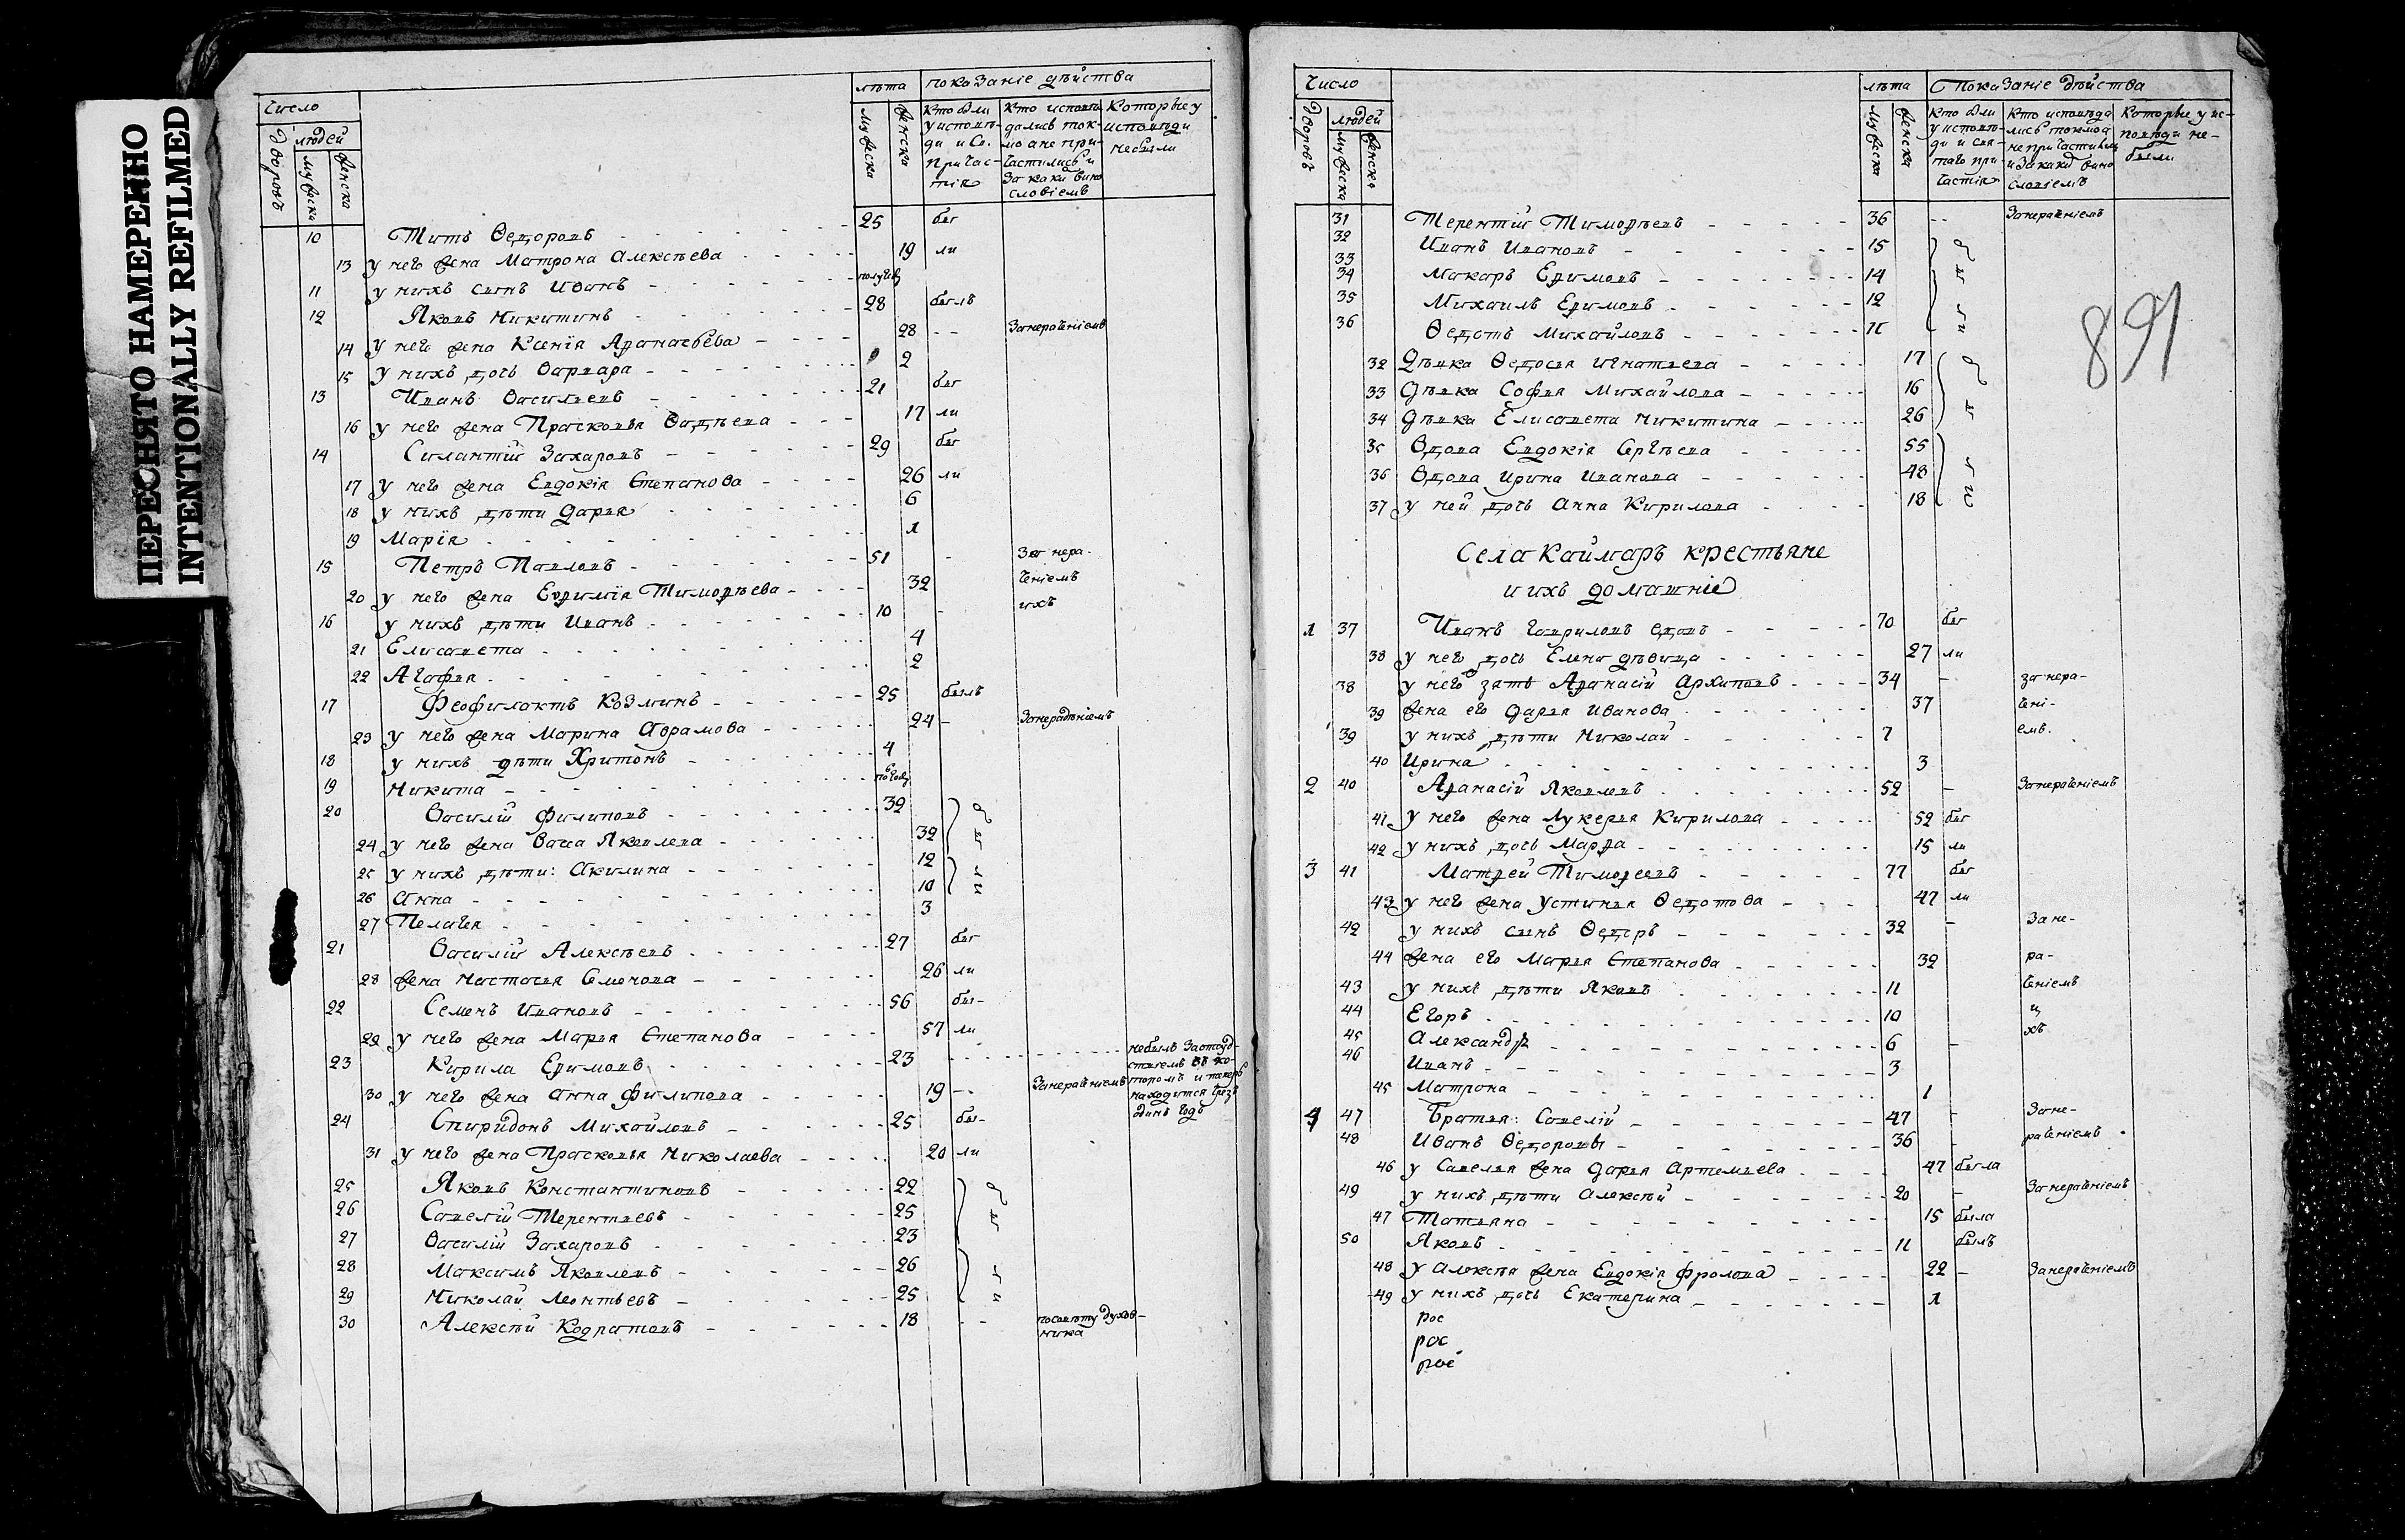 ПЕРЕСНЯТО НАМЕРЕННО
INTENTIONALLY REFILMED
Число
лѣта показаніе дѣйства
Дворовъ
людей
мужеска
женска
мужеска
женска
Кто были у исповѣди и Св. Причастія
Кто исповѣдались токмо а не причастились и за какимъ винословіемъ
Которые у исповѣди небыли
10 Титъ Ѳедоровъ 25 бы
13 у него жена Матрона Алексѣева 19 ли
11 у нихъ сынъ Иванъ полугоду
12 Яковъ Никитинъ 28 былъ
14 у него жена Ксенія Афанасьева 28 Занераченіемъ
15 у нихъ дочь Варвара 2
13 Иванъ Васильевъ 21 бы
16 у него жена Прасковья Фадѣева 17 ли
14 Силантій Захаровъ 29 бы
17 у него жена Евдокія Степанова 26 ли
18 у нихъ дѣти Дарья 6
19 Марія 1
15 Петръ Павловъ 51 За нера-
20 у него жена Евфимія Тимофѣева 32 ченіемъ
16 у нихъ дѣти Иванъ 10 ихъ
21 Елисавета 4
22 Агафья 2
17 Феофилактъ Козминъ 25 былъ
23 у него жена Марина Абрамова 24 Занерадѣніемъ
18 у нихъ дѣти Харитонъ 4
19 Никита полгоду
20 Василій Филиповъ 32 бы
24 у него жена Васса Яковлева 32
25 у нихъ дѣти: Акилина 12 ли
26 Анна 10
27 Пелагея 3
21 Василій Алексѣевъ 27 бы
28 жена Настасья Семонова 26 ли
22 Семенъ Ивановъ 56 бы-
29 у него жена Марья Степанова 57 ли
23 Кирила Ефимовъ 23 небылъ Заотсудствіемъ въ котором и теперь находится чрезъ одинъ годъ
30 у него жена Анна Филипова 19 Занераченіемъ
24 Спиридонъ Михайловъ 25 бы-
31 у него жена Прасковья Николаева 20 ли
25 Яковъ Константиновъ 22 бы
26 Савелій Терентьевъ 25
27 Василій Захаровъ 23
28 Максимъ Яковлевъ 26 ли
29 Николай Леонтьевъ 25
30 Алексѣй Кодратовъ 18 посовѣту духовника
Число
лѣта Показаніе дѣйства
Дворовъ
людей
мужеска
женска
мужеска
женска
Кто были у исповѣди и святаго причастія
Кто исповѣдались токмо а не причастились и за какимъ винословіемъ
Которые у исповѣди небыли
891
31 Терентій Тимофѣевъ 36 Занераченіемъ
32 Иванъ Ивановъ 15 бы
33
34 Макаръ Ефимовъ 14
35 Михаилъ Ефимовъ 12 ли
36 Ѳедотъ Михайловъ 11
32 Дѣвка Ѳедосья Игнатьева 17 бы
33 Дѣвка Софья Михайлова 16
34 Дѣвка Елисавета Никитина 26
35 Вдова Евдокія Сергѣева 55 ли
36 Вдова Ирина Иванова 48
37 у ней дочь Анна Кирилова 18
Села Каймаръ крестьяне
и ихъ домашніе
1 37 Иванъ Гавриловъ вдовъ 70 бы
38 у него дочь Елена дѣвица 27 ли
38 у него зять Афанасій Архиповъ 34 за нера-
39 жена его Дарья Иванова 37 чені-
39 у нихъ дѣти Николай 7 емъ.
40 Ирина 3
2 40 Афанасій Яковлевъ 52 Занераченіемъ
41 у него жена Лукерья Кирилова 52 бы
42 у нихъ дочь Марфа 15 ли
3 41 Матфей Тимофеевъ 77 бы
43 у него жена Устинья Ѳедотова 47 ли
42 у нихъ сынъ Ѳедоръ 32 За не-
44 жена его Марья Степанова 32 ра-
43 у нихъ дѣти Яковъ 11 ченіемъ
44 Егоръ 10 и
45 Александръ 6 хъ
46 Иванъ 3
45 Матрона 1
4 47 Братья: Савелій 47 Зане-
48 Иванъ Ѳедоровы 36 раченіемъ
46 у Савелья жена Дарья Артемьева 47 была
49 у нихъ дѣти Алексѣй 20 Занераченіемъ
47 Татьяна 15 была
50 Яковъ 11 былъ
48 у Алексѣя жена Евдокія Фролова 22 Занераченіемъ
49 у нихъ дочь Екатерина 1
рос
рос
рос